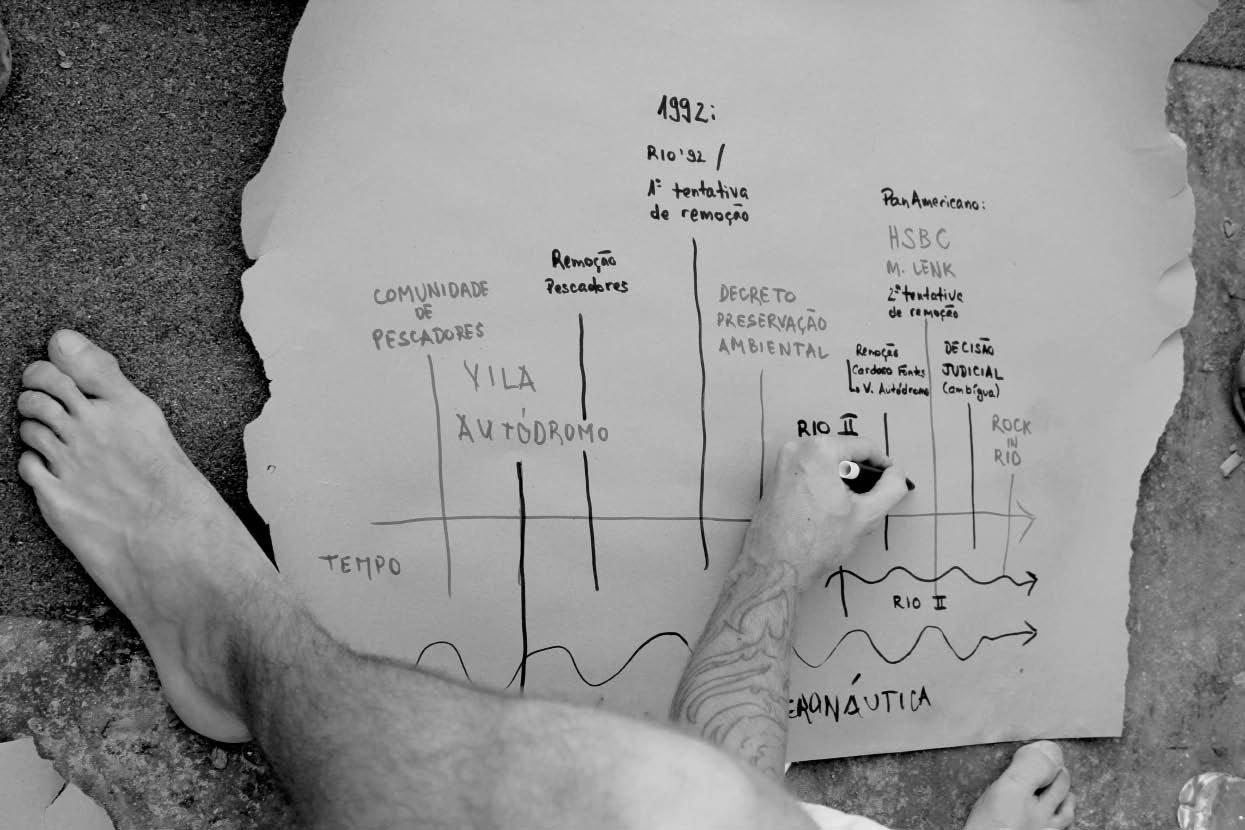 1992:
RIO '92 /
1ª tentativa
de remoção
Remoção
Pescadores
COMUNIDADE
DE
PESCADORES
VILA
AUTÓDROMO
DECRETO
PRESERVAÇÃO
AMBIENTAL
PanAmericano:
HSBC
M. LENK
2ª tentativa
de remoção
Remoção
Cardoso Fontes
V. Autódromo
DECISÃO
JUDICIAL
(ambígua)
RIO II
ROCK
IN
RIO
TEMPO
RIO II